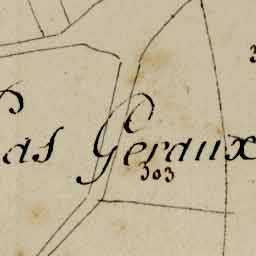 las Geraux
303